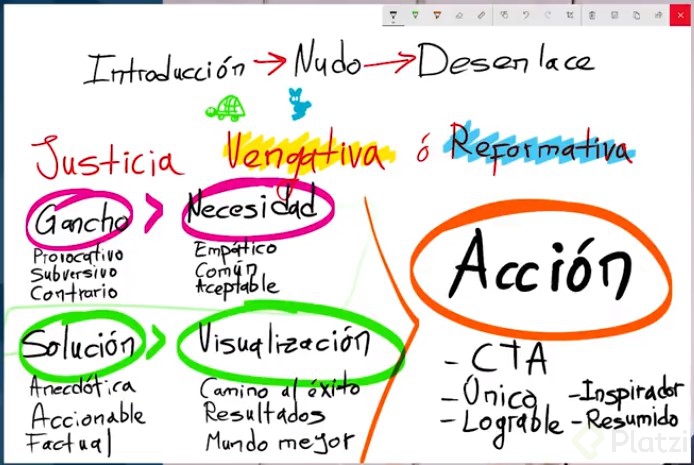 Introducción → Nudo → Desenlace
Justicia Vengativa ó Reformativa
Gancho > Necesidad
Provocativo
Subversivo
Contrario
Empático
Común
Aceptable
Solución > Visualización
Anecdótica
Accionable
Factual
Camino al éxito
Resultados
Mundo mejor
Acción
- CTA
- Único - Inspirador
- Lograble - Resumido
Platzi